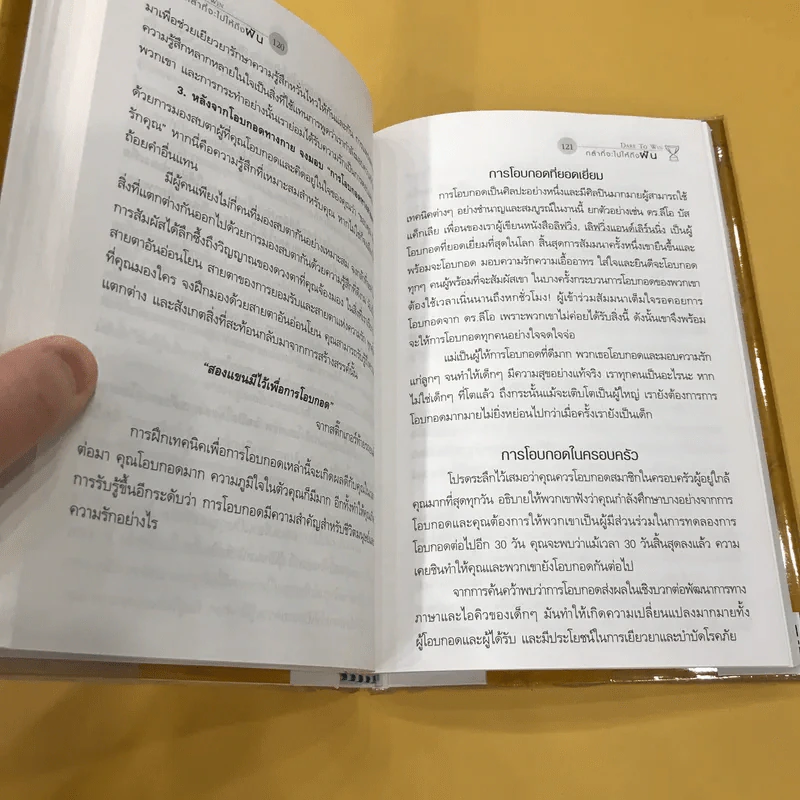 กล้าที่จะไปให้ถึงฝัน 120
มาเพื่อช่วยเยียวยารักษาความรู้สึกหวั่นไหวให้กันและกัน
ความรู้สึกหลากหลายในใจเป็นสิ่งที่ใช้แทนการพูดว่าเรากำลัง
พวกเขา และการกระทำอย่างนั้นเราย่อมได้รับความรัก
3. หลังจากโอบกอดทางกาย จงมอบ “การโอบกอด
ด้วยการมองสบตาผู้ที่คุณโอบกอดและคิดอยู่ในใจของคุณว่า
รักคุณ” หากนี่คือความรู้สึกที่เหมาะสมสำหรับคุณ หากไม่
ถ้อยคำอื่นแทน
มีผู้คนเพียงไม่กี่คนที่มองสบตากันอย่างเหมาะสม
สิ่งที่แตกต่างกันออกไปด้วยการมองสบตากันด้วยความรู้สึกที่
การสัมผัสได้ลึกซึ้งถึงวิญญาณของดวงตาที่คุณจ้องมอง ในสิ่งที่
สายตาอันอ่อนโยน สายตาของการยอมรับและสายตาแห่งความรัก
ที่คุณมองใคร จงฝึกมองด้วยสายตาอันอ่อนโยน คุณสามารถรับรู้
แตกต่าง และสังเกตสิ่งที่สะท้อนกลับมาจากการสร้างสรรค์นั้น
“สองแขนมีไว้เพื่อการโอบกอด”
จากสติ๊กเกอร์ท้ายรถยนต์
การฝึกเทคนิคเพื่อการโอบกอดเหล่านี้จะเกิดผลดีกับคุณใน
ต่อมา คุณโอบกอดมาก ความภูมิใจในตัวคุณก็มีมาก อีกทั้งทำให้คุณ
การรับรู้ขึ้นอีกระดับว่า การโอบกอดมีความสำคัญสำหรับชีวิตมนุษย์
ความรักอย่างไร
121 DARE TO WIN
กล้าที่จะไปให้ถึงฝัน
การโอบกอดที่ยอดเยี่ยม
การโอบกอดเป็นศิลปะอย่างหนึ่งและมีศิลปินมากมายผู้สามารถใช้
เทคนิคต่างๆ อย่างชำนาญและสมบูรณ์ในงานนี้ ยกตัวอย่างเช่น ดร.ลีโอ บัส
แค็กเลีย เพื่อนของเราผู้เขียนหนังสือลิฟวิ่ง, เลิฟวิ่งแอนด์เลิร์นนิ่ง เป็นผู้
โอบกอดที่ยอดเยี่ยมที่สุดในโลก สิ้นสุดการสัมมนาครั้งหนึ่งเขายืนขึ้นและ
พร้อมจะโอบกอด มอบความรักความเอื้ออาทร ใส่ใจและยินดีจะโอบกอด
ทุกๆ คนผู้พร้อมที่จะสัมผัสเขา ในบางครั้งกระบวนการโอบกอดของพวกเขา
ต้องใช้เวลาเนิ่นนานถึงหกชั่วโมง! ผู้เข้าร่วมสัมมนาเต็มใจรอคอยการ
โอบกอดจาก ดร.ลีโอ เพราะพวกเขาไม่ค่อยได้รับสิ่งนี้ ดังนั้นเขาจึงพร้อม
จะให้การโอบกอดทุกคนอย่างใจจดใจจ่อ
แม่เป็นผู้ให้การโอบกอดที่ดีมาก พวกเธอโอบกอดและมอบความรัก
แก่ลูกๆ จนทำให้เด็กๆ มีความสุขอย่างแท้จริง เราทุกคนเป็นอะไรนะ หาก
ไม่ใช่เด็กๆ ที่โตแล้ว ถึงกระนั้นแม้จะเติบโตเป็นผู้ใหญ่ เรายังต้องการการ
โอบกอดมากมายไม่ยิ่งหย่อนไปกว่าเมื่อครั้งเรายังเป็นเด็ก
การโอบกอดในครอบครัว
โปรดระลึกไว้เสมอว่าคุณควรโอบกอดสมาชิกในครอบครัวผู้อยู่ใกล้
คุณมากที่สุดทุกวัน อธิบายให้พวกเขาฟังว่าคุณกำลังศึกษาบางอย่างจากการ
โอบกอดและคุณต้องการให้พวกเขาเป็นผู้มีส่วนร่วมในการทดลองการ
โอบกอดต่อไปอีก 30 วัน คุณจะพบว่าแม้เวลา 30 วันสิ้นสุดลงแล้ว ความ
เคยชินทำให้คุณและพวกเขายังโอบกอดกันต่อไป
จากการค้นคว้าพบว่าการโอบกอดส่งผลในเชิงบวกต่อพัฒนาการทาง
ภาษาและไอคิวของเด็กๆ มันทำให้เกิดความเปลี่ยนแปลงมากมายทั้ง
ผู้โอบกอดและผู้ได้รับ และมีประโยชน์ในการเยียวยาและบำบัดโรคภัย